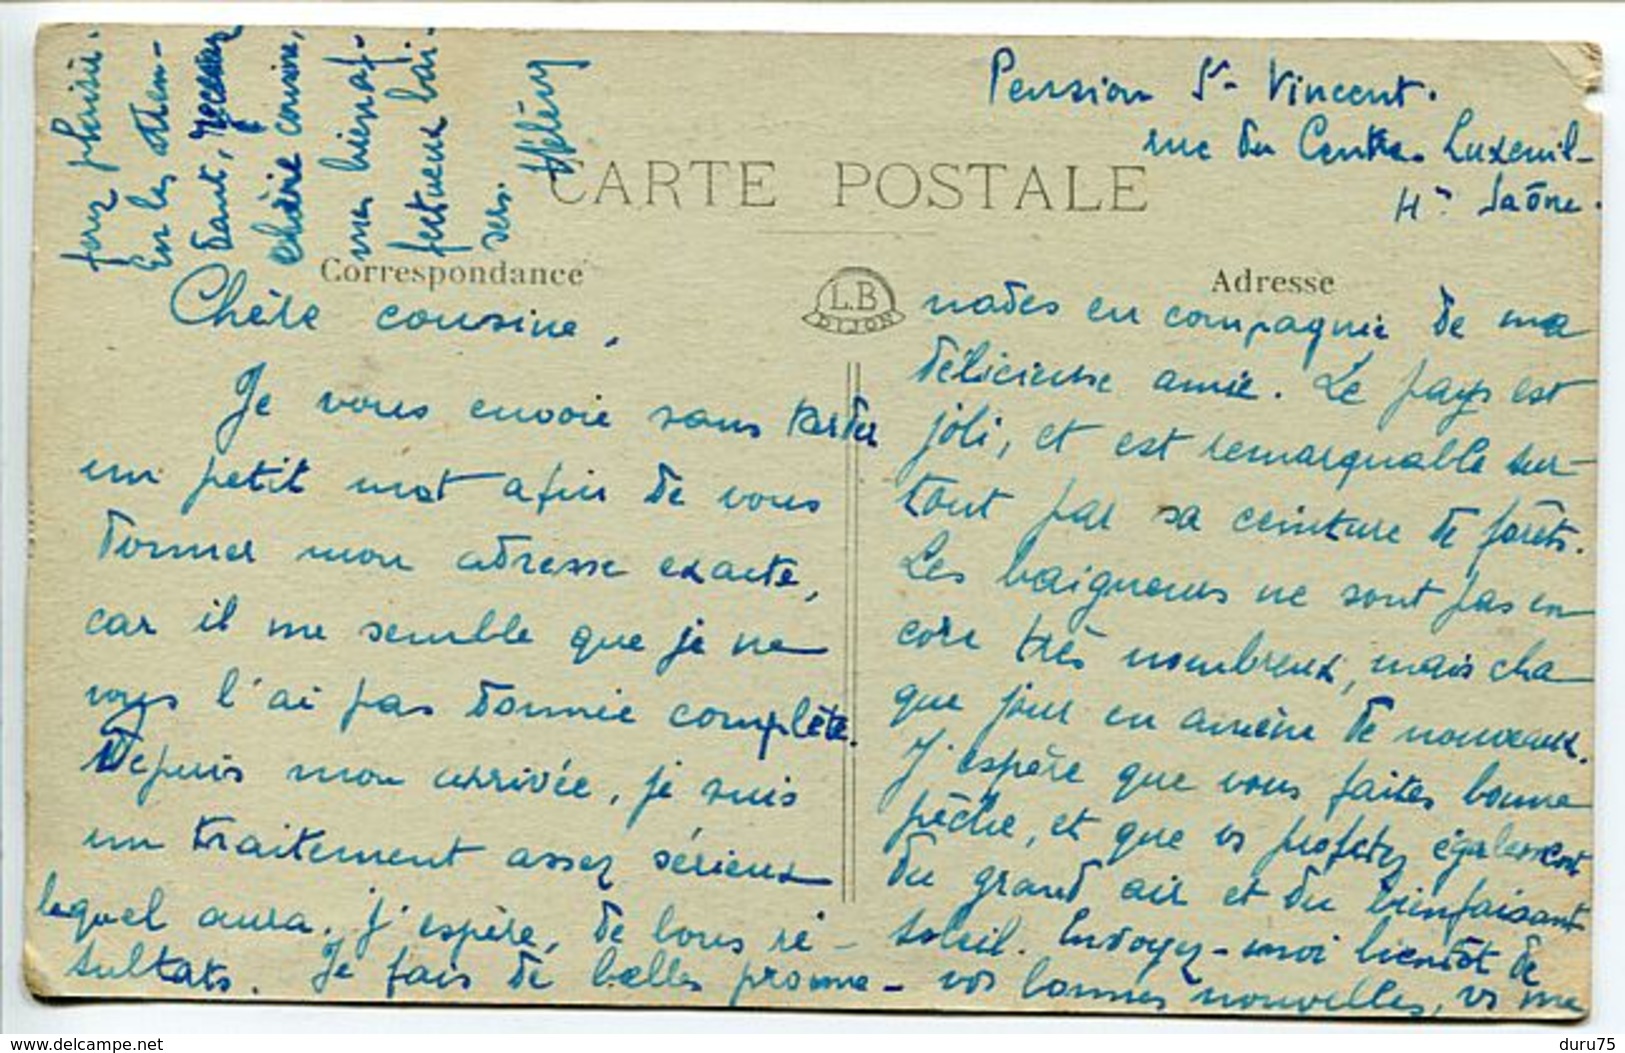 Pension St Vincent.
rue du Centre. Luxeuil-
Hte Saône.
CARTE POSTALE
Correspondance
Adresse
L.B
DIJON
Chère cousine,
Je vous envoie sans tarder
un petit mot afin de vous
donner mon adresse exacte,
car il me semble que je ne
vous l'ai pas donnée complète.
Depuis mon arrivée, je suis
un traitement assez sérieux
lequel aura, j'espère, de bons ré-
sultats. Je fais de belles prome-
nades en compagnie de ma
délicieuse amie. Le pays est
joli, et est remarquable sur-
tout par sa ceinture de forêts.
Les baigneurs ne sont pas en
core très nombreux, mais cha
que jour en amène de nouveaux.
J'espère que vous faites bonne
pêche, et que vs profitez également
du grand air et du bienfaisant
soleil. Envoyez-moi bientôt de
vos bonnes nouvelles, vs me
ferez plaisir.
En les atten-
dant, recevez
chère cousine,
mes bien af-
fectueux bai-
sers.
delcampe.net
duru75